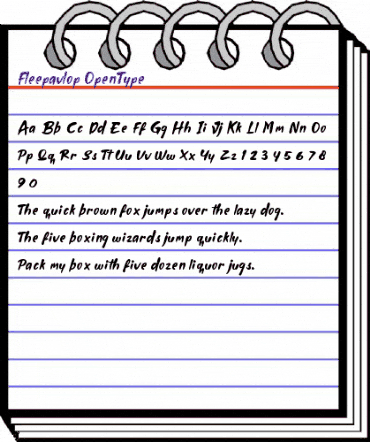 Fleepavlop OpenType
Aa Bb Cc Dd Ee Ff Gg Hh Ii Jj Kk Ll Mm Nn Oo
Pp Qq Rr Ss Tt Uu Vv Ww Xx Yy Zz 1 2 3 4 5 6 7 8
9 0
The quick brown fox jumps over the lazy dog.
The five boxing wizards jump quickly.
Pack my box with five dozen liquor jugs.